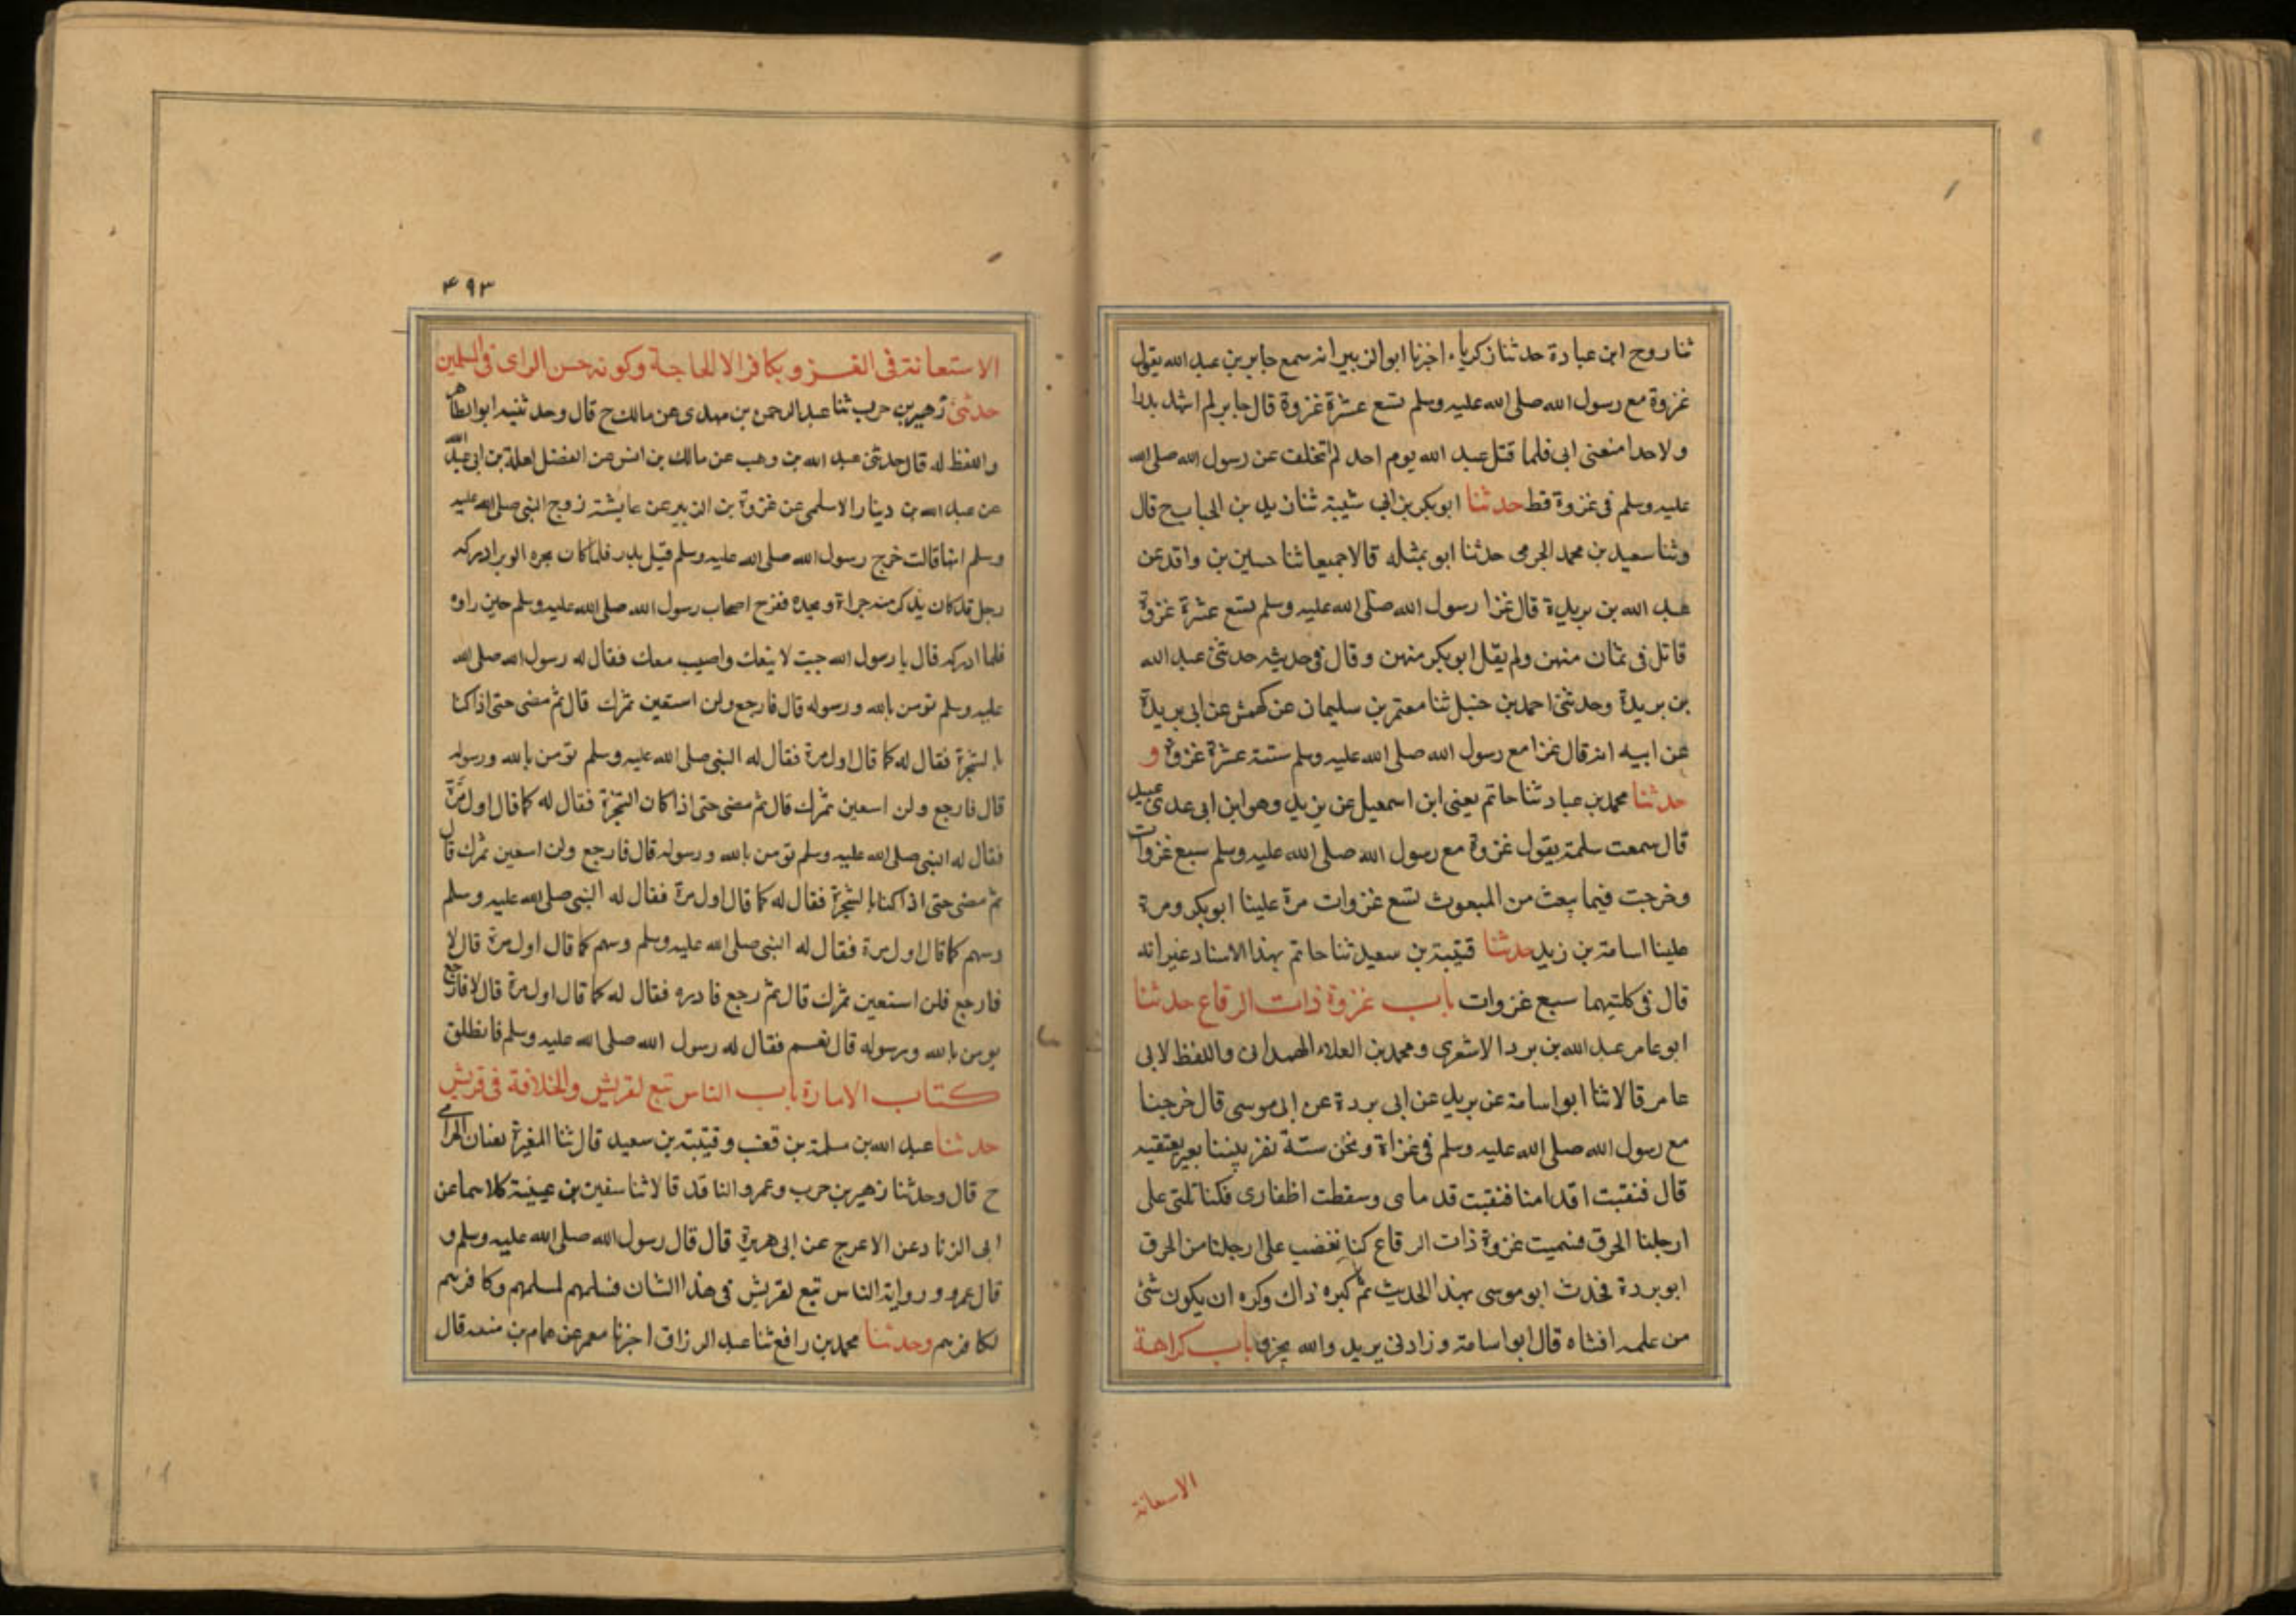 ثنا روح ابن عبادة حدثنا زكرياء اخبرنا ابوالزبير انه سمع جابر بن عبد الله يقول
غزوة مع رسول الله صلى الله عليه وسلم تسع عشرة غزوة قال جابر لم اشهد بدرا
ولا احدا منعنى ابى فلما قتل عبد الله يوم احد لم اتخلف عن رسول الله صلى الله
عليه وسلم فى غزوة قط حدثنا ابوبكر بن ابى شيبة ثنا زيد بن الحباب ح قال
وثنا سعيد بن محمد الجرمى حدثنا ابو بمثله قالا جميعا ثنا حسين بن واقد عن
عبد الله بن بريدة قال غزا رسول الله صلى الله عليه وسلم تسع عشرة غزوة
قاتل فى ثمان منهن ولم يقل ابوبكر منهن وقال فى حديثه حدثنى عبد الله
بن بريدة وحدثنى احمد بن حنبل ثنا معتمر بن سليمان عن كهمش عن ابى بريدة
عن ابيه انه قال غزا مع رسول الله صلى الله عليه وسلم ستة عشرة غزوة و
حدثنا محمد بن عباد ثنا حاتم يعنى ابن اسمعيل عن يزيد وهو ابن ابى عدى عبيد
قال سمعت سلمة يقول غزوة مع رسول الله صلى الله عليه وسلم سبع غزوات
وخرجت فيما يبعث من المبعوث تسع غزوات مرة علينا ابوبكر ومرة
علينا اسامة بن زيد حدثنا قتيبة بن سعيد ثنا حاتم بهذا الاسناد غير انه
قال فى كلتيهما سبع غزوات باب غزوة ذات الرقاع حدثنا
ابو عامر عبد الله بن برد الاشعرى ومحمد بن العلاء الهمدانى واللفظ لابى
عامر قالا ثنا ابو اسامة عن بريد عن ابى بردة عن ابى موسى قال خرجنا
مع رسول الله صلى الله عليه وسلم فى غزاة ونحن ستة نفر بيننا بعير يعتقبه
قال فنقبت اقدامنا فنقبت قدماى وسقطت اظفارى فكنا نلقى على
ارجلنا الحزق فسميت غزوة ذات الرقاع كنا نغضب على ارجلنا من الحرق
ابو بردة فحدث ابو موسى بهذا الحديث ثم كبره ذاك وكره ان يكون شئ
من علمه افشاه قال ابو اسامة وزادنى بريد والله يجزى باب كراهة
الاستعانة
۴۹۳
الاستعانة فى الغزو بكافر الا لحاجة وكونه حسن الراى فى المسلمين
حدثنى زهير بن حرب ثنا عبد الرحمن بن مهدى عن مالك ح قال وحدثنيه ابو الطاهر
واللفظ له قال حدثنى عبد الله بن وهب عن مالك بن انس عن الفضل لعلة بن ابى عبد الله
عن عبد الله بن دينار الاسلمى عن غزوة بن الزبير عن عايشة زوج النبى صلى الله عليه
وسلم انها قالت خرج رسول الله صلى الله عليه وسلم قبل بدر فلما كان بجره الوبر ادركه
رجل قد كان يذكر منه جراة ونجده ففرح اصحاب رسول الله صلى الله عليه وسلم حين راوه
فلما ادركه قال يا رسول الله جيت لا يتعك واصيب معك فقال له رسول الله صلى الله
عليه وسلم تومن بالله ورسوله قال فارجع ولن استعين بمشرك قال ثم مضى حتى اذا كنا
بالشجرة فقال له كما قال اول مرة فقال له النبى صلى الله عليه وسلم تومن بالله ورسوله
قال فارجع ولن اسعين بمشرك قال ثم مضى حتى اذا كان الشجرة فقال له كما قال اول مرة
فقال له النبى صلى الله عليه وسلم تومن بالله ورسوله قال فارجع ولن اسعين بمشرك قال
ثم مضى حتى اذا كنا بالشجرة فقال له كما قال اول مرة فقال له النبى صلى الله عليه وسلم
وسهم كما قال اول مرة فقال له النبى صلى الله عليه وسلم وسهم كما قال اول مرة قال لا
فارجع فلن استعين بمشرك قال ثم رجع فادره فقال له كما قال اول مرة قال لا فارجع
يومن بالله ورسوله قال نعم فقال له رسول الله صلى الله عليه وسلم فانطلق
كتاب الامارة باب الناس تبع لقريش والخلافة فى قريش
حدثنا عبد الله بن مسلمة بن قعنب وقتيبة بن سعيد قال ثنا المغيرة يعنيان الحزامى
ح قال وحدثنا زهير بن حرب وعمرو الناقد قالا ثنا سفين بن عيينة كلاسما عن
ابى الزناد عن الاعرج عن ابى هريرة قال قال رسول الله صلى الله عليه وسلم و
قال عمرو ورواية الناس تبع لقريش فى هذا الشان فسلمهم لمسلمهم وكافرهم
لكافرهم وحدثنا محمد بن رافع ثنا عبد الرزاق اخبرنا معمر عن همام بن منبه قال